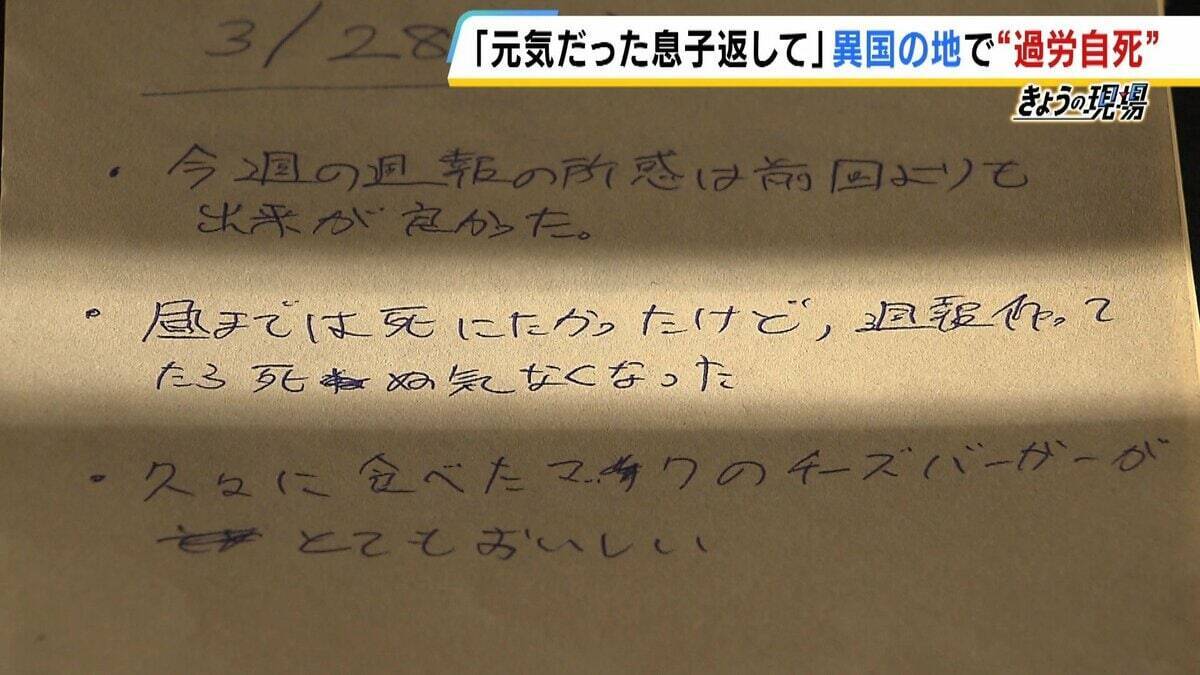 「元気だった息子返して」異国の地で“過労自死”
きょうの現場
3/28
・今週の週報の所感は前回よりも
出来が良かった。
・昼までは死にたかったけど,週報作って
たら死ぬ気なくなった
・久々に食べたマックのチーズバーガーが
とてもおいしい